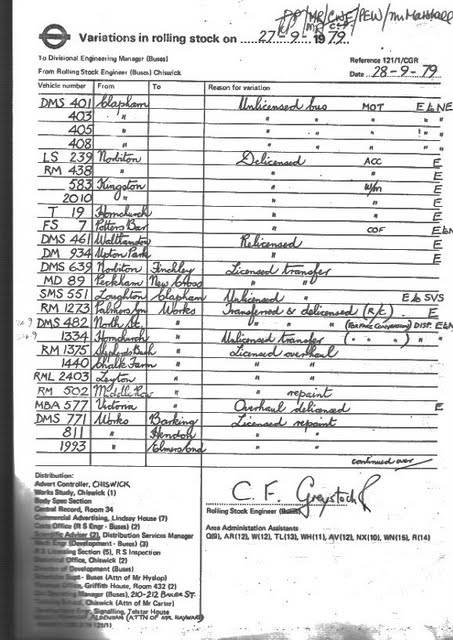 MR/CWF/PEW/Mr Marshall
Variations in rolling stock on 27-9-1979
To Divisional Engineering Manager (Buses)
Reference 121/1/CGR
From Rolling Stock Engineer (Buses) Chiswick
Date 28-9-79
Vehicle number From To Reason for variation
DMS 401 Clapham Unlicensed bus MOT E & NE
403 " " " " " "
405 " " " " " "
408 " " " "
LS 239 Norbiton Delicensed ACC E
RM 438 " " " E
583 Kingston " W/m E
2010 " " " E
T 19 Hornchurch " " E
FS 7 Potters Bar " COF E & NE
DMS 461 Walthamstow Relicensed E
DM 934 Upton Park " E
DMS 639 Norbiton Finchley Licensed transfer
MD 89 Peckham New Cross " "
SMS 551 Loughton Clapham Unlicensed " E to SVS
RM 1273 Palmers Gn Works Transferred & delicensed (R/C) E
DMS 482 North St. " " " " DISP. E & NE
1334 Hornchurch " Unlicensed transfer ( " " ) "
RM 1375 Shepherds Bush " Licensed overhaul
1440 Chalk Farm " " "
RML 2403 Leyton " " "
RM 502 Middle Row " " repaint
MBA 577 Victoria " Overhaul delicensed E
DMS 771 Works Barking Licensed repaint
811 " Hendon " "
1993 " Elmers End " "
continued over
Distribution:
Advert Controller, CHISWICK
Works Study, Chiswick (1)
Body Spec Section
Central Record, Room 34
Commercial Advertising, Lindsay House (7)
Costs Office (R S Engr - Buses) (2)
Scientific Adviser (2), Distribution Services Manager
Mech Engr (Development - Buses) (3)
R S Licensing Section (5), R S Inspection
Office, Chiswick (2)
Director of Development (Buses)
Schedules Supt - Buses (Attn of Mr Hyslop)
Office, Griffith House, Room 432 (2)
Operating Manager (Buses), 210-212 BAKER ST.
School, Chiswick (Attn of Mr Carter)
Engr, Signalling, Telstar House
ALDENHAM (ATTN OF MR. HAYWARD)
C. F. Greystock
Rolling Stock Engineer (Buses)
Area Administration Assistants
Q(9), AR(12), W(12), TL(13), WH(11), AV(12), NX(10), WN(15), R(14)